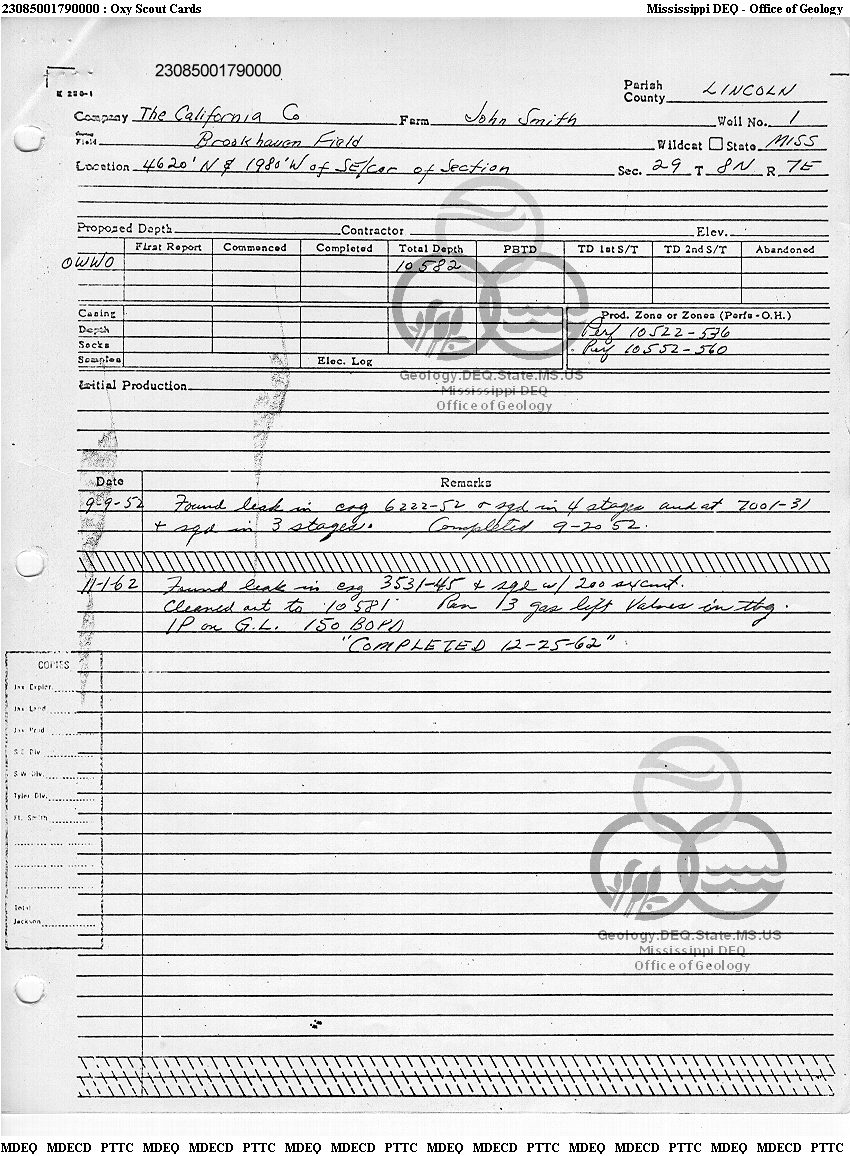 23085001790000 : Oxy Scout Cards Mississippi DEQ - Office of Geology
23085001790000
K 250-1
Parish
County LINCOLN
Company The California Co Farm John Smith Well No. 1
Field Brookhaven Field Wildcat State MISS
Location 4620' N & 1980' W of SE/cor of Section Sec. 29 T 8N R 7E
Proposed Depth Contractor Elev.
First Report Commenced Completed Total Depth PBTD TD 1st S/T TD 2nd S/T Abandoned
OWWO 10582
Casing Prod. Zone or Zones (Perfs - O.H.)
Depth Perf 10522-536
Sacks Perf 10552-560
Samples Elec. Log
Geology.DEQ.State.MS.US
Mississippi DEQ
Office of Geology
Initial Production
Date Remarks
9-9-52 Found leak in csg 6222-52 & sqd in 4 stages and at 7001-31
+ sqd in 3 stages. Completed 9-20 52.
11-1-62 Found leak in csg 3531-45 & sqd w/ 200 sx cmt.
Cleaned out to 10581' Ran 13 gas lift Valves in tbg.
IP on G.L. 150 BOPD
"COMPLETED 12-25-62"
COPIES
Jax Explor.
Jax Land
Jax Prod.
S E Div.
S W Div.
Tyler Div.
Ft. Smith
Total
Jackson
Geology.DEQ.State.MS.US
Mississippi DEQ
Office of Geology
MDEQ MDECD PTTC MDEQ MDECD PTTC MDEQ MDECD PTTC MDEQ MDECD PTTC MDEQ MDECD PTTC MDEQ MDECD PTTC